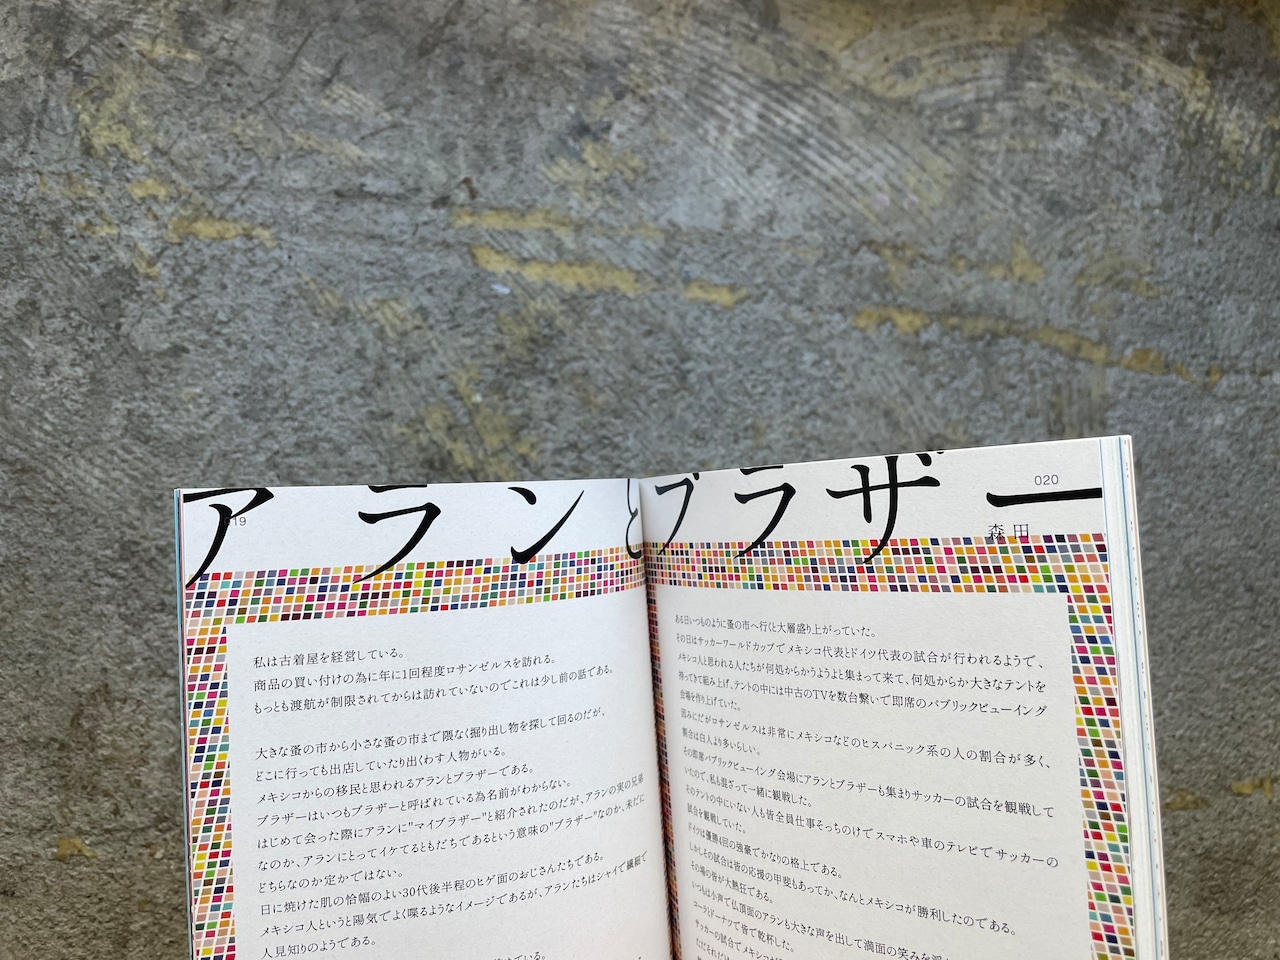 アランとブラザー
019
私は古着屋を経営している。
商品の買い付けの為に年に1回程度ロサンゼルスを訪れる。
もっとも渡航が制限されてからは訪れていないのでこれは少し前の話である。
大きな蚤の市から小さな蚤の市まで隈なく掘り出し物を探して回るのだが、
どこに行っても出店していたり出くわす人物がいる。
メキシコからの移民と思われるアランとブラザーである。
ブラザーはいつもブラザーと呼ばれている為名前がわからない。
はじめて会った際にアランに"マイブラザー"と紹介されたのだが、アランの実の兄弟
なのか、アランにとってイケてるともだちであるという意味の"ブラザー"なのか、未だに
どちらなのか定かではない。
日に焼けた肌の恰幅のよい30代後半程のヒゲ面のおじさんたちである。
メキシコ人というと陽気でよく喋るようなイメージであるが、アランたちはシャイで繊細で
人見知りのようである。
020
森田
ある日いつものように蚤の市へ行くと大層盛り上がっていた。
その日はサッカーワールドカップでメキシコ代表とドイツ代表の試合が行われるようで、
メキシコ人と思われる人たちが何処からかうようよと集まって来て、何処からか大きなテントを
持ってきて組み上げ、テントの中には中古のTVを数台繋いで即席のパブリックビューイング
会場を作り上げていた。
因みにだがロサンゼルスは非常にメキシコなどのヒスパニック系の人の割合が多く、
割合は白人より多いらしい。
その即席パブリックビューイング会場にアランとブラザーも集まりサッカーの試合を観戦して
いたので、私も混ざって一緒に観戦した。
そのテントの中にいない人も皆全員仕事そっちのけでスマホや車のテレビでサッカーの
試合を観戦していた。
ドイツは優勝4回の強豪でかなりの格上である。
しかしその試合は皆の応援の甲斐もあってか、なんとメキシコが勝利したのである。
その場の皆が大熱狂である。
いつもは小声で仏頂面のアランも大きな声を出して満面の笑みを
コーラとドーナツで皆で乾杯した。
サッカーの試合でメキシコが